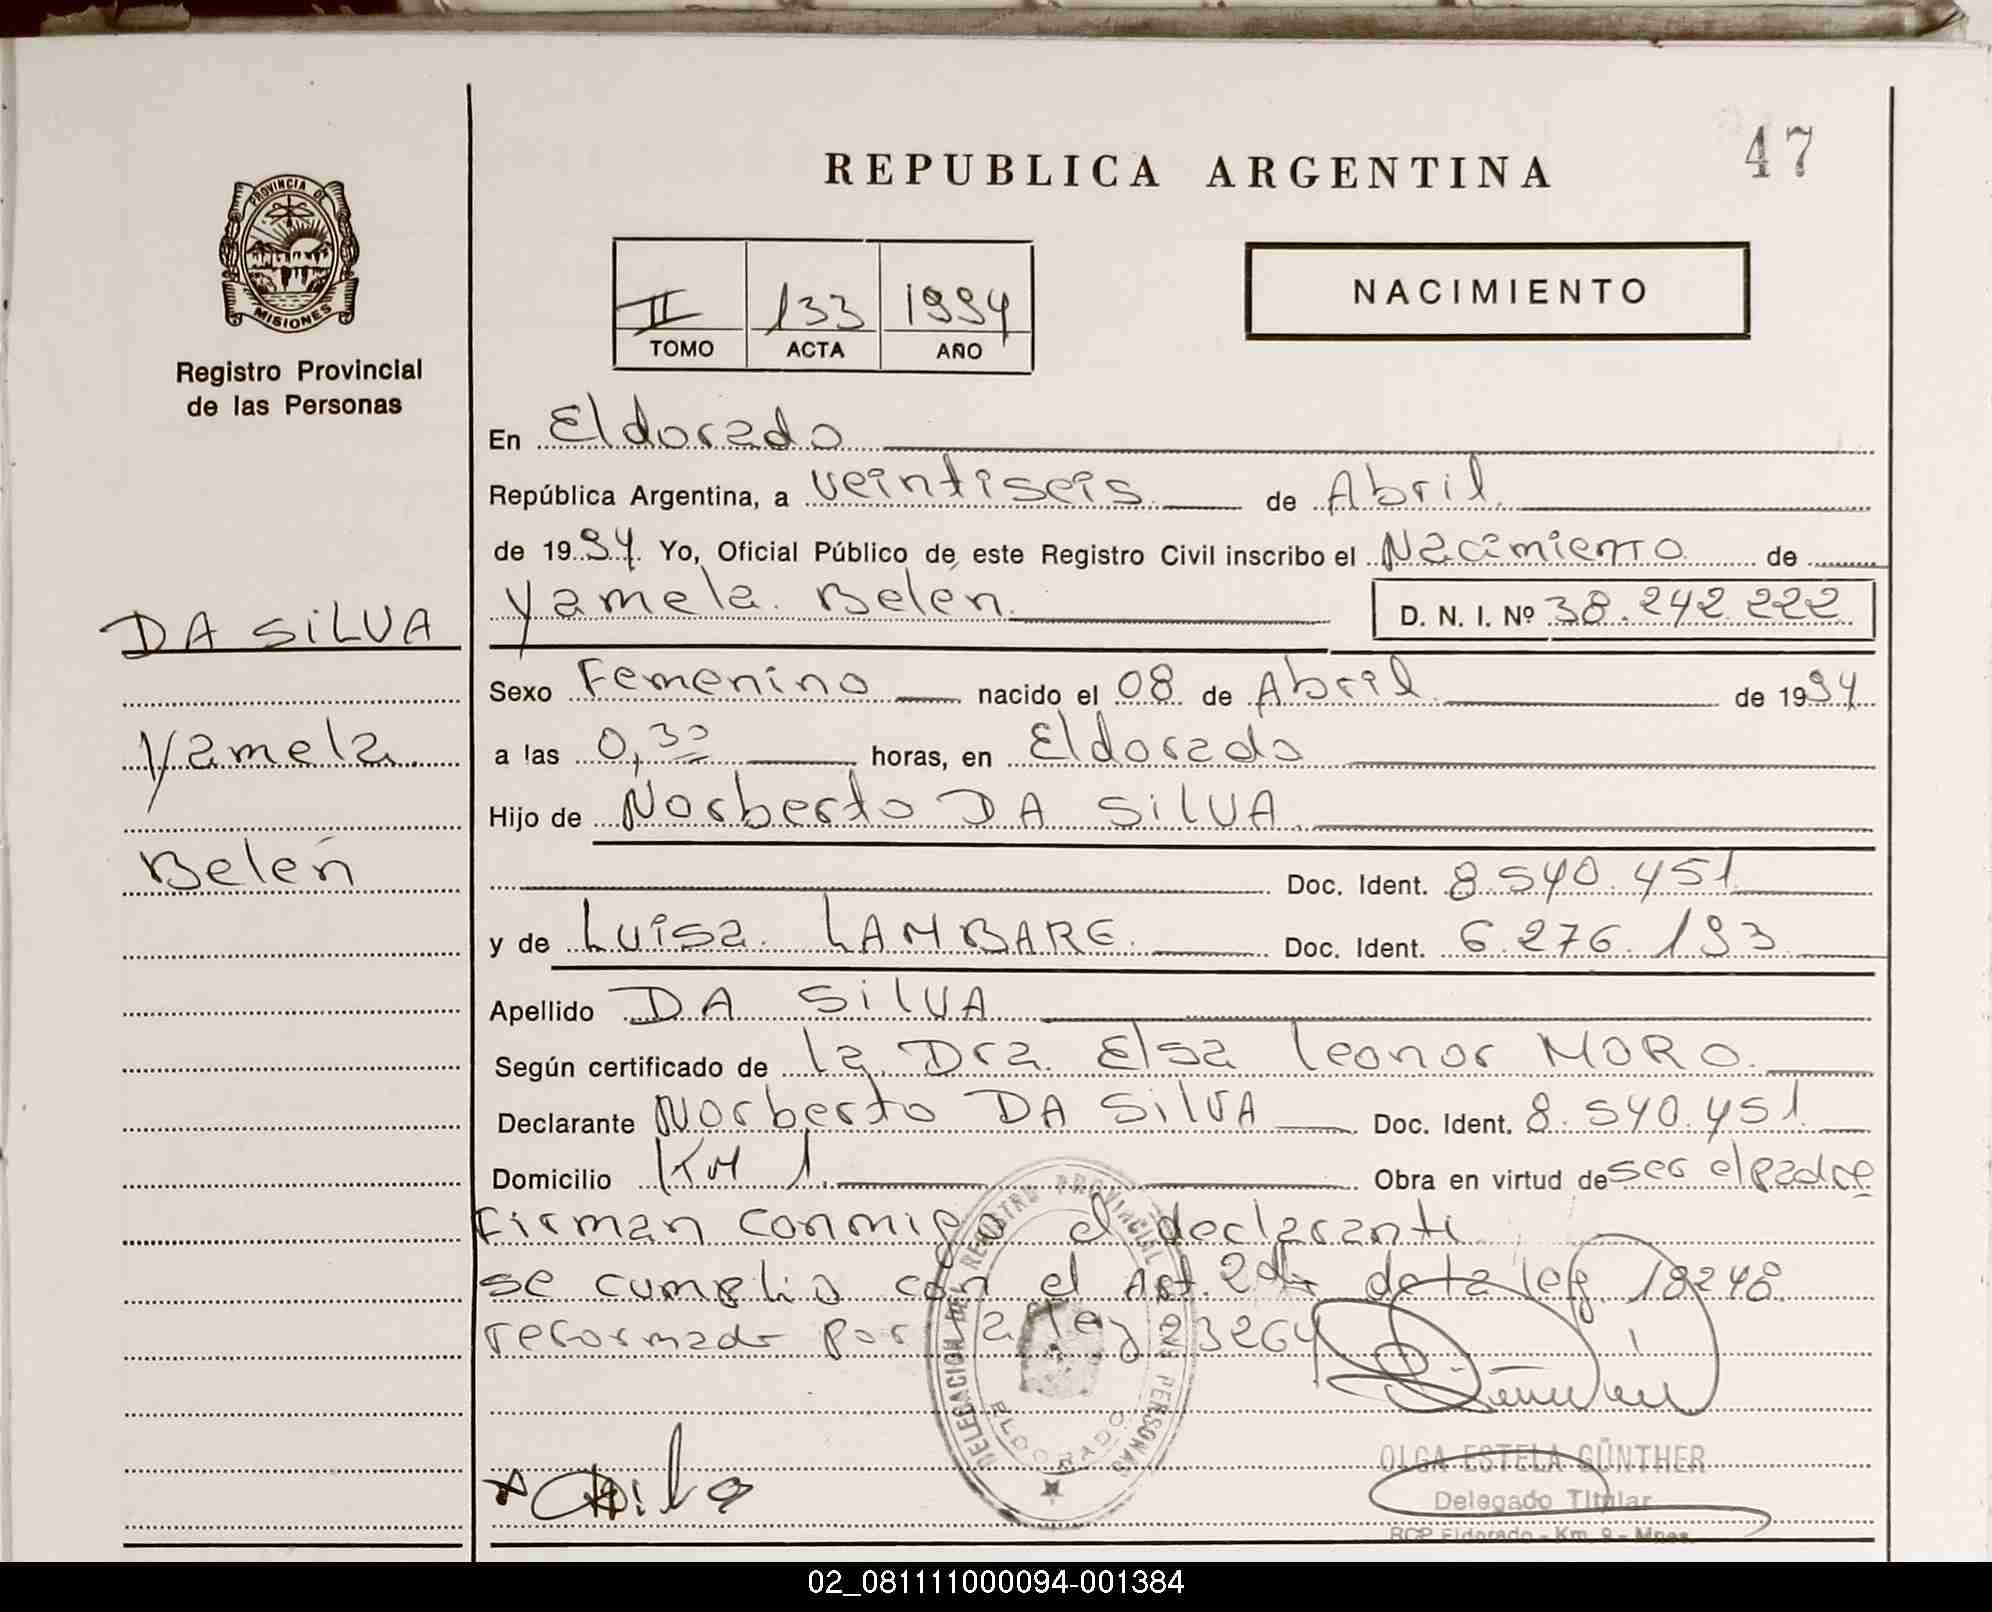 47
REPUBLICA ARGENTINA
PROVINCIA DE
MISIONES
Registro Provincial
de las Personas
II 133 1994
TOMO ACTA AÑO
NACIMIENTO
En Eldorado
República Argentina, a veintiseis de Abril
de 1994. Yo, Oficial Público de este Registro Civil inscribo el Nacimiento de
Yamela Belén D. N. I. Nº 38.242.222
DA SILVA
Yamela
Belén
Sexo Femenino nacido el 08 de Abril de 1994
a las 0,30 horas, en Eldorado
Hijo de Norberto DA SILVA
Doc. Ident. 8.540.451
y de Luisa LAMBARE Doc. Ident. 6.276.193
Apellido DA SILVA
Según certificado de la Dra. Elsa Leonor MORO.
Declarante Norberto DA SILVA Doc. Ident. 8.540.451
Domicilio KM 1. Obra en virtud de ser el padre
Firman conmigo el declarante
se cumplio con el Art. 2do de la ley 18248
reformado por la ley 23264
DELEGACION DEL REGISTRO PROVINCIAL DE LAS PERSONAS
ELDORADO
OLGA ESTELA GÜNTHER
Delegado Titular
RCP Eldorado - Km. 9 - Mnes.
02_081111000094-001384